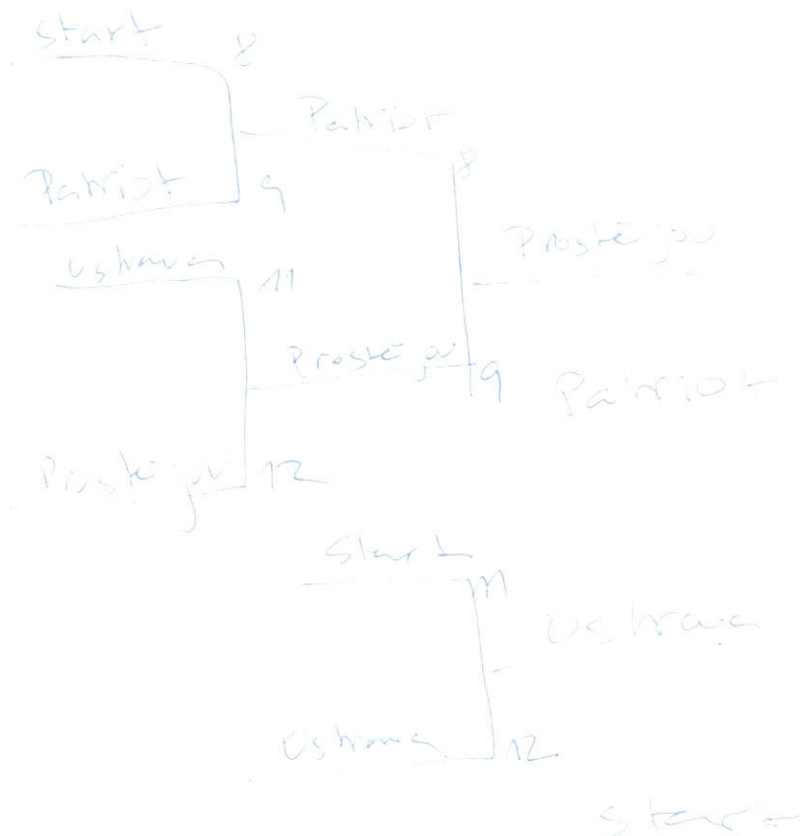 Start 8
Patriot
8
Patriot 9
Prostějov
Ostrava 11
Prostějov 9
Patriot
Prostějov 12
Start 11
Ostrava
Ostrava 12
Start